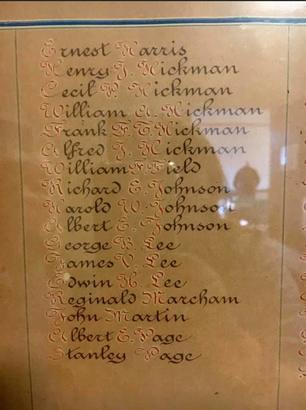 Ernest Harris
Henry J. Hickman
Cecil P. Hickman
William A. Hickman
Frank F. T. Hickman
Alfred J. Hickman
William F. Field
Richard E. Johnson
Harold W. Johnson
Albert E. Johnson
George B. Lee
James V. Lee
Edwin H. Lee
Reginald Marcham
John Martin
Albert E. Page
Stanley Page